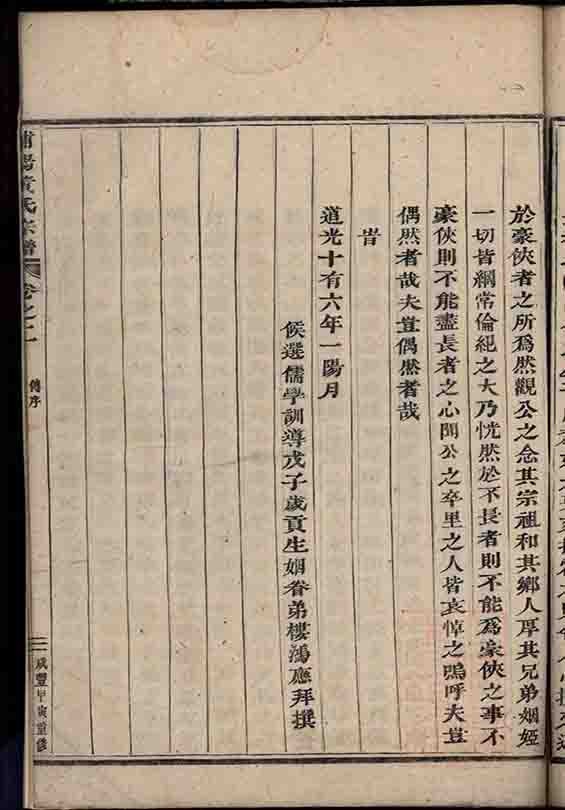 於豪俠者之所爲然觀公之念其宗祖和其鄉人厚其兄弟姻婭
一切皆綱常倫紀之大乃恍然於不長者則不能爲豪俠之事不
豪俠則不能盡長者之心聞公之卒里之人皆哀悼之嗚呼夫豈
偶然者哉夫豈偶然者哉
旹
道光十有六年一陽月
候選儒學訓導戊子歲貢生姻眷弟樓鴻應拜撰
浦陽黄氏宗譜 卷之二 傳序 二 咸豐甲寅重修